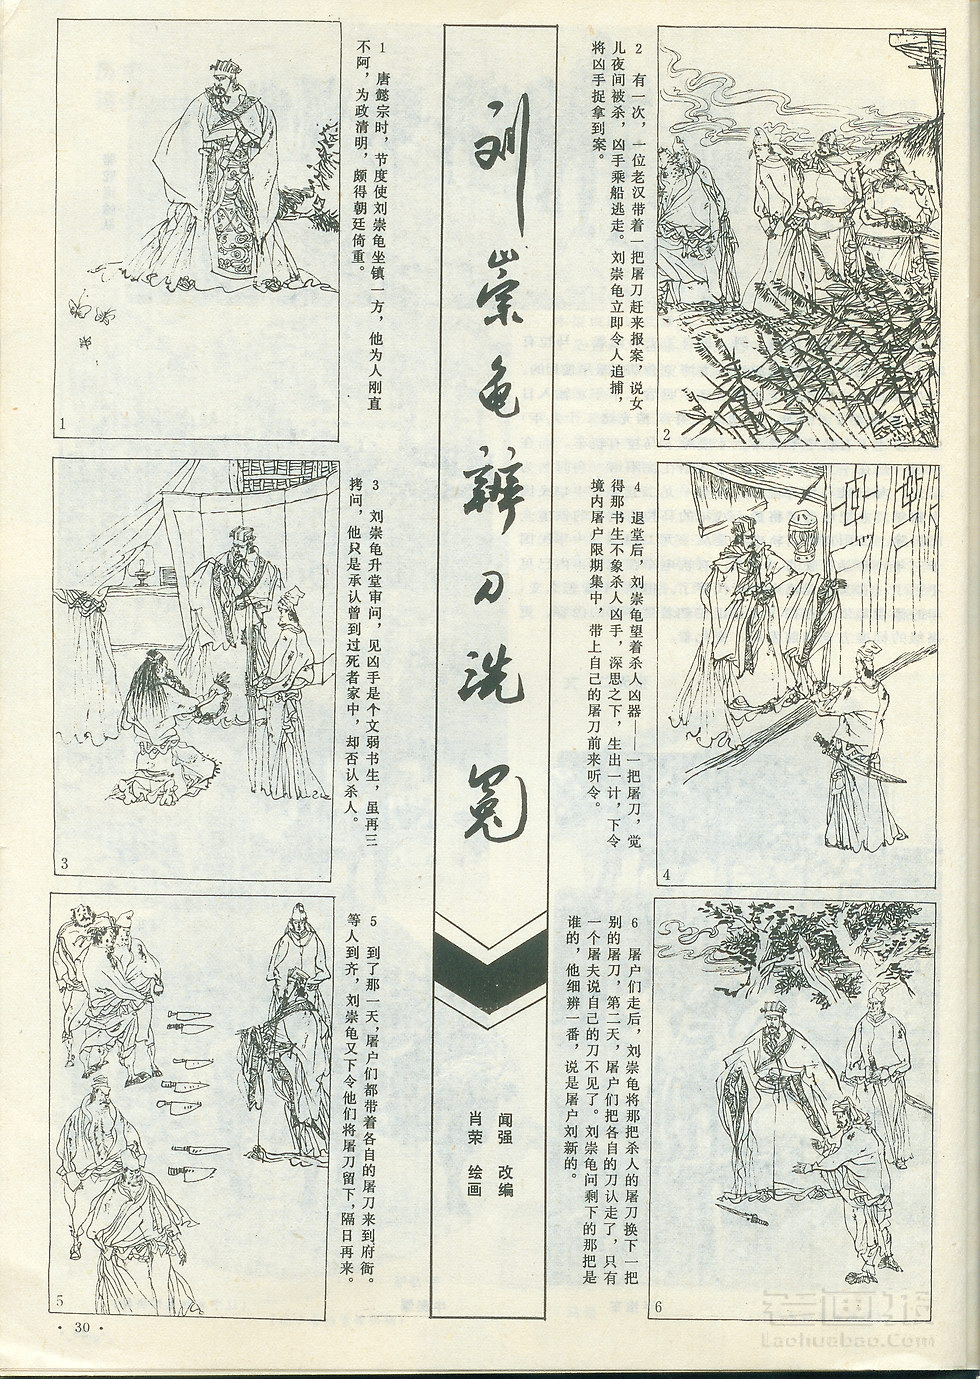 刘崇龟辨刀洗冤
闻强 改编
肖荣 绘画
1 唐懿宗时，节度使刘崇龟坐镇一方，他为人刚直
不阿，为政清明，颇得朝廷倚重。
1
2 有一次，一位老汉带着一把屠刀赶来报案，说女
儿夜间被杀，凶手乘船逃走。刘崇龟立即令人追捕，
将凶手捉拿到案。
2
3 刘崇龟升堂审问，见凶手是个文弱书生，虽再三
拷问，他只是承认曾到过死者家中，却否认杀人。
3
4 退堂后，刘崇龟望着杀人凶器——一把屠刀，觉
得那书生不象杀人凶手，深思之下，生出一计，下令
境内屠户限期集中，带上自己的屠刀前来听令。
4
5 到了那一天，屠户们都带着各自的屠刀来到府衙。
等人到齐，刘崇龟又下令他们将屠刀留下，隔日再来。
5
6 屠户们走后，刘崇龟将那把杀人的屠刀换下一把
别的屠刀，第二天，屠户们把各自的刀认走了，只有
一个屠夫说自己的刀不见了。刘崇龟问剩下的那把是
谁的，他细辨一番，说是屠户刘新的。
6
· 30 ·
老画报
Laohuabao.Com